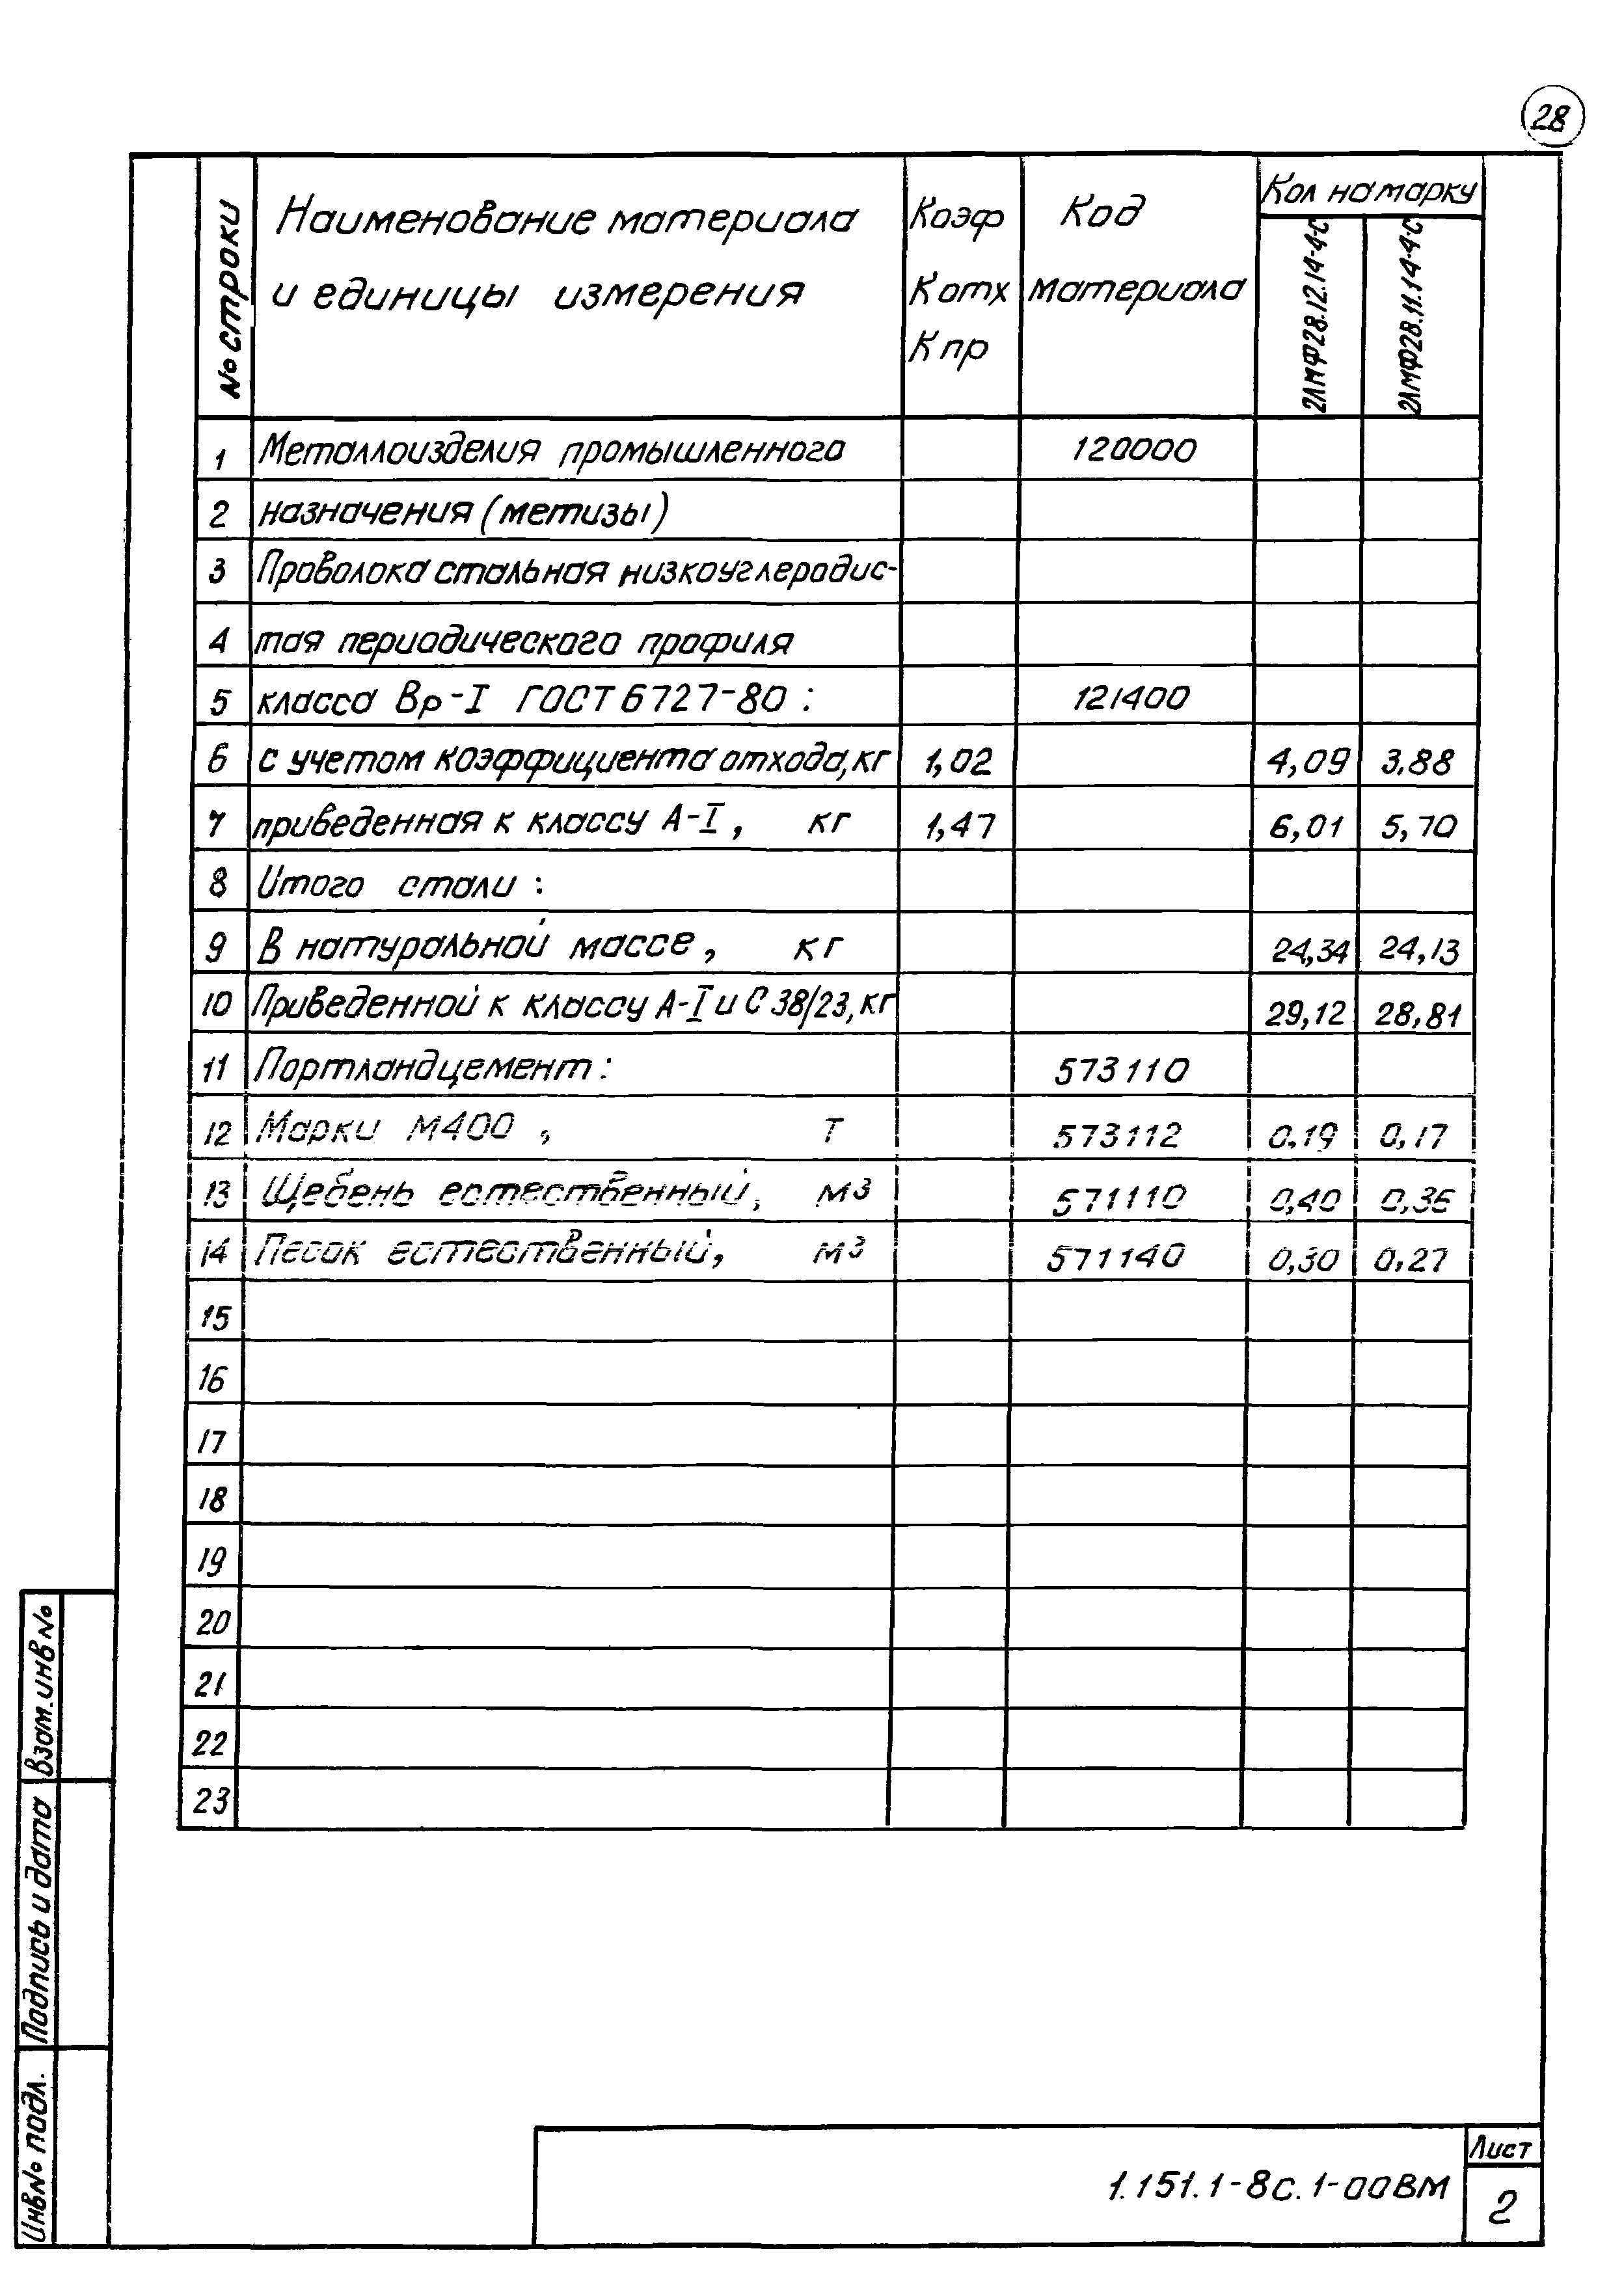 28
№ строки
Наименование материала
и единицы измерения
Коэф
К отх
К пр
Код
материала
Кол на марку
2ЛМФ28.12.14-4-С
2ЛМФ28.11.14-4-С
1 Металлоизделия промышленного 120000
2 назначения (метизы)
3 Проволока стальная низкоуглеродис-
4 тая периодического профиля
5 класса Вр-I ГОСТ 6727-80 : 121400
6 с учетом коэффициента отхода, кг 1,02 4,09 3.88
7 приведенная к классу А-I, кг 1,47 6,01 5,70
8 Итого стали :
9 В натуральной массе, кг 24,34 24,13
10 Приведенной к классу А-I и С 38/23, кг 29,12 28,81
11 Портландцемент : 573110
12 Марки М400 , т 573112 0.19 0,17
13 Щебень естественный, м3 571110 0,40 0,36
14 Песок естественный, м3 571140 0,30 0,27
15
16
17
18
19
20
21
22
23
Взам. инв №
Подпись и дата
Инв № подл.
1.151.1-8с.1-00ВМ
Лист
2